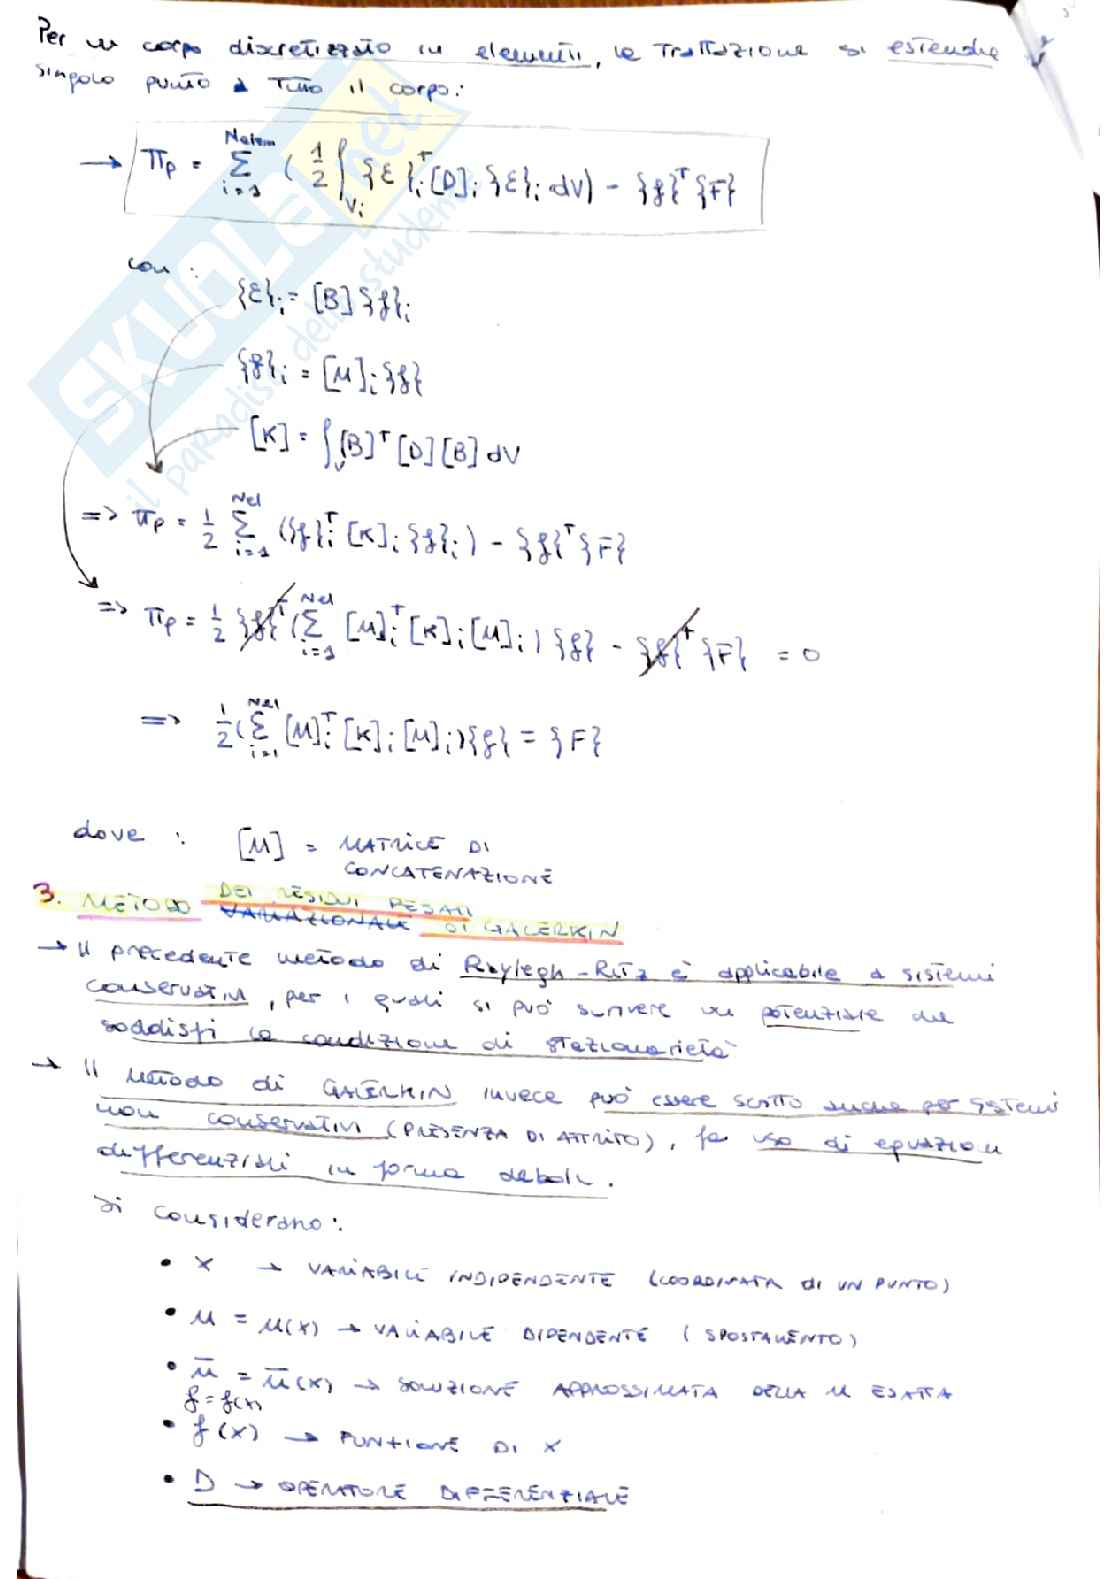 Per un corpo discretizzato in elementi, la trattazione si estende
singolo punto a tutto il corpo:
→ Πp = Σ_{i=1}^{Nelem} (1/2 ∫_{Vi} {ε}_i^T [D]_i {ε}_i dV) - {f}^T {F}
con :
{ε}_i = [B] {f}_i
{f}_i = [M]_i {f}
[K] = ∫_V [B]^T [D] [B] dV
=> Πp = 1/2 Σ_{i=1}^{Nel} ({f}_i^T [K]_i {f}_i) - {f}^T {F}
=> Πp = 1/2 {f}^T (Σ_{i=1}^{Nel} [M]_i^T [K]_i [M]_i) {f} - {f}^T {F} = 0
=> 1/2 (Σ_{i=1}^{Nel} [M]_i^T [K]_i [M]_i) {f} = {F}
dove : [M] = MATRICE DI
CONCATENAZIONE
DEI RESIDUI PESATI
3. METODO VARIAZIONALE DI GALERKIN
→ Il precedente metodo di Raylegh-Ritz è applicabile a sistemi
conservativi, per i quali si può scrivere un potenziale che
soddisfi la condizione di stazionarietà
→ Il metodo di GALERKIN invece può essere scritto anche per sistemi
non conservativi (PRESENZA DI ATTRITO), fa uso di equazioni
differenziali in forma debole.
Si considerano:
• x → VARIABILE INDIPENDENTE (COORDINATA DI UN PUNTO)
• u = u(x) → VARIABILE DIPENDENTE (SPOSTAMENTO)
• ū = ū(x) → SOLUZIONE APPROSSIMATA DELLA u ESATTA
f = f(x)
• f(x) → FUNZIONE DI x
• D → OPERATORE DIFFERENZIALE
SKUOLA.net
il paradiso dello studente